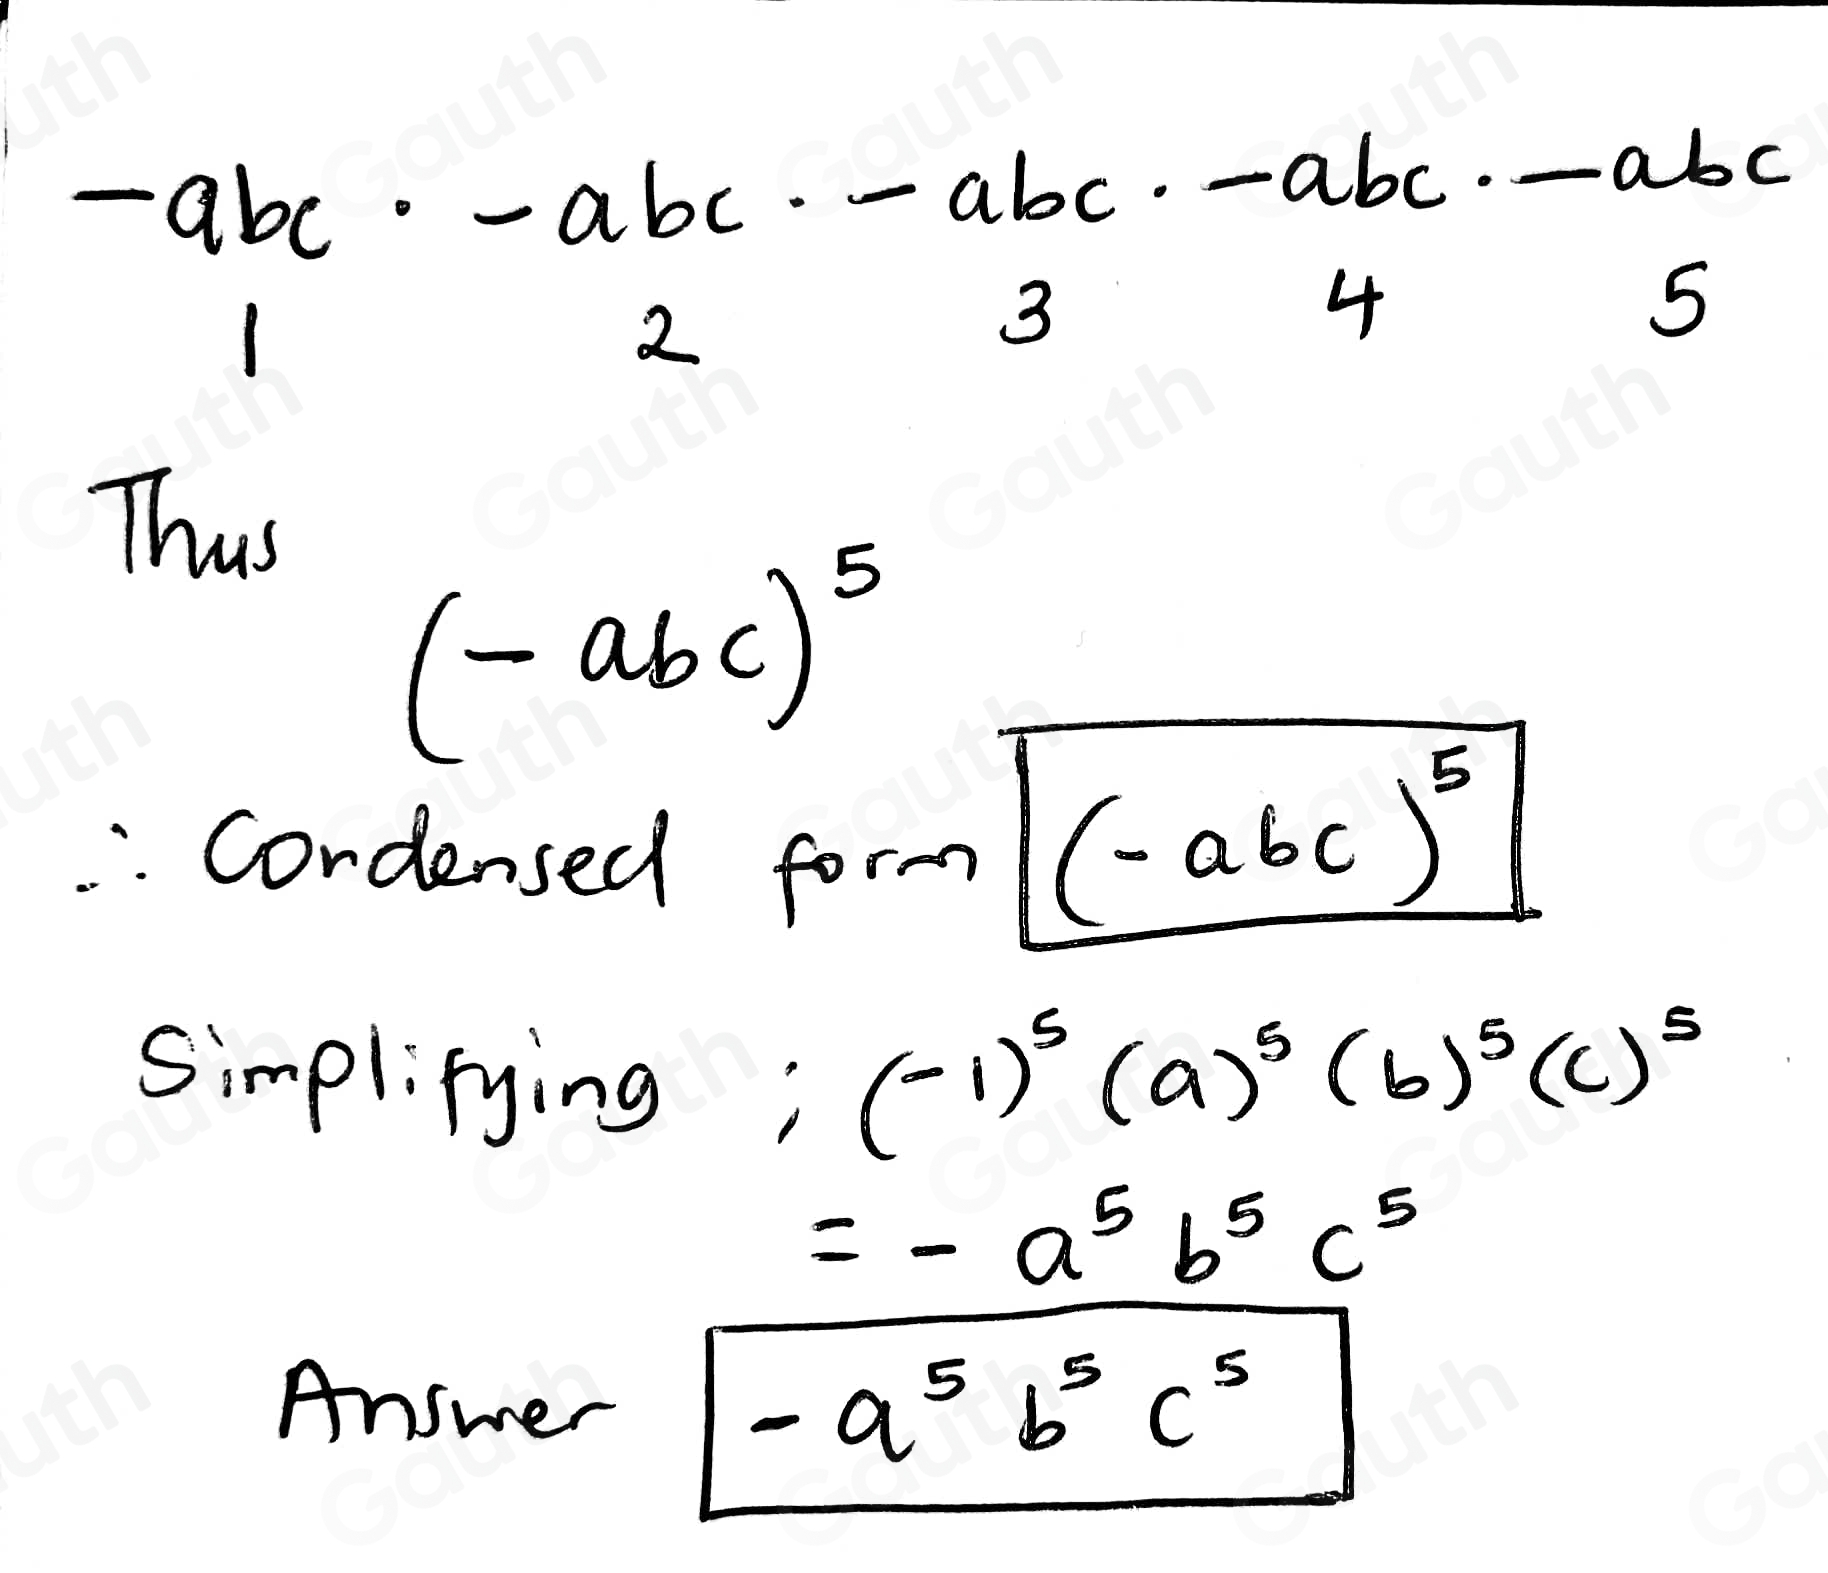 -abc · -abc · -abc · -abc · -abc
1 2 3 4 5
Thus
(-abc)⁵
∴ Condensed form (-abc)⁵
Simplifying ; (-1)⁵ (a)⁵ (b)⁵ (c)⁵
= - a⁵ b⁵ c⁵
Answer - a⁵ b⁵ c⁵